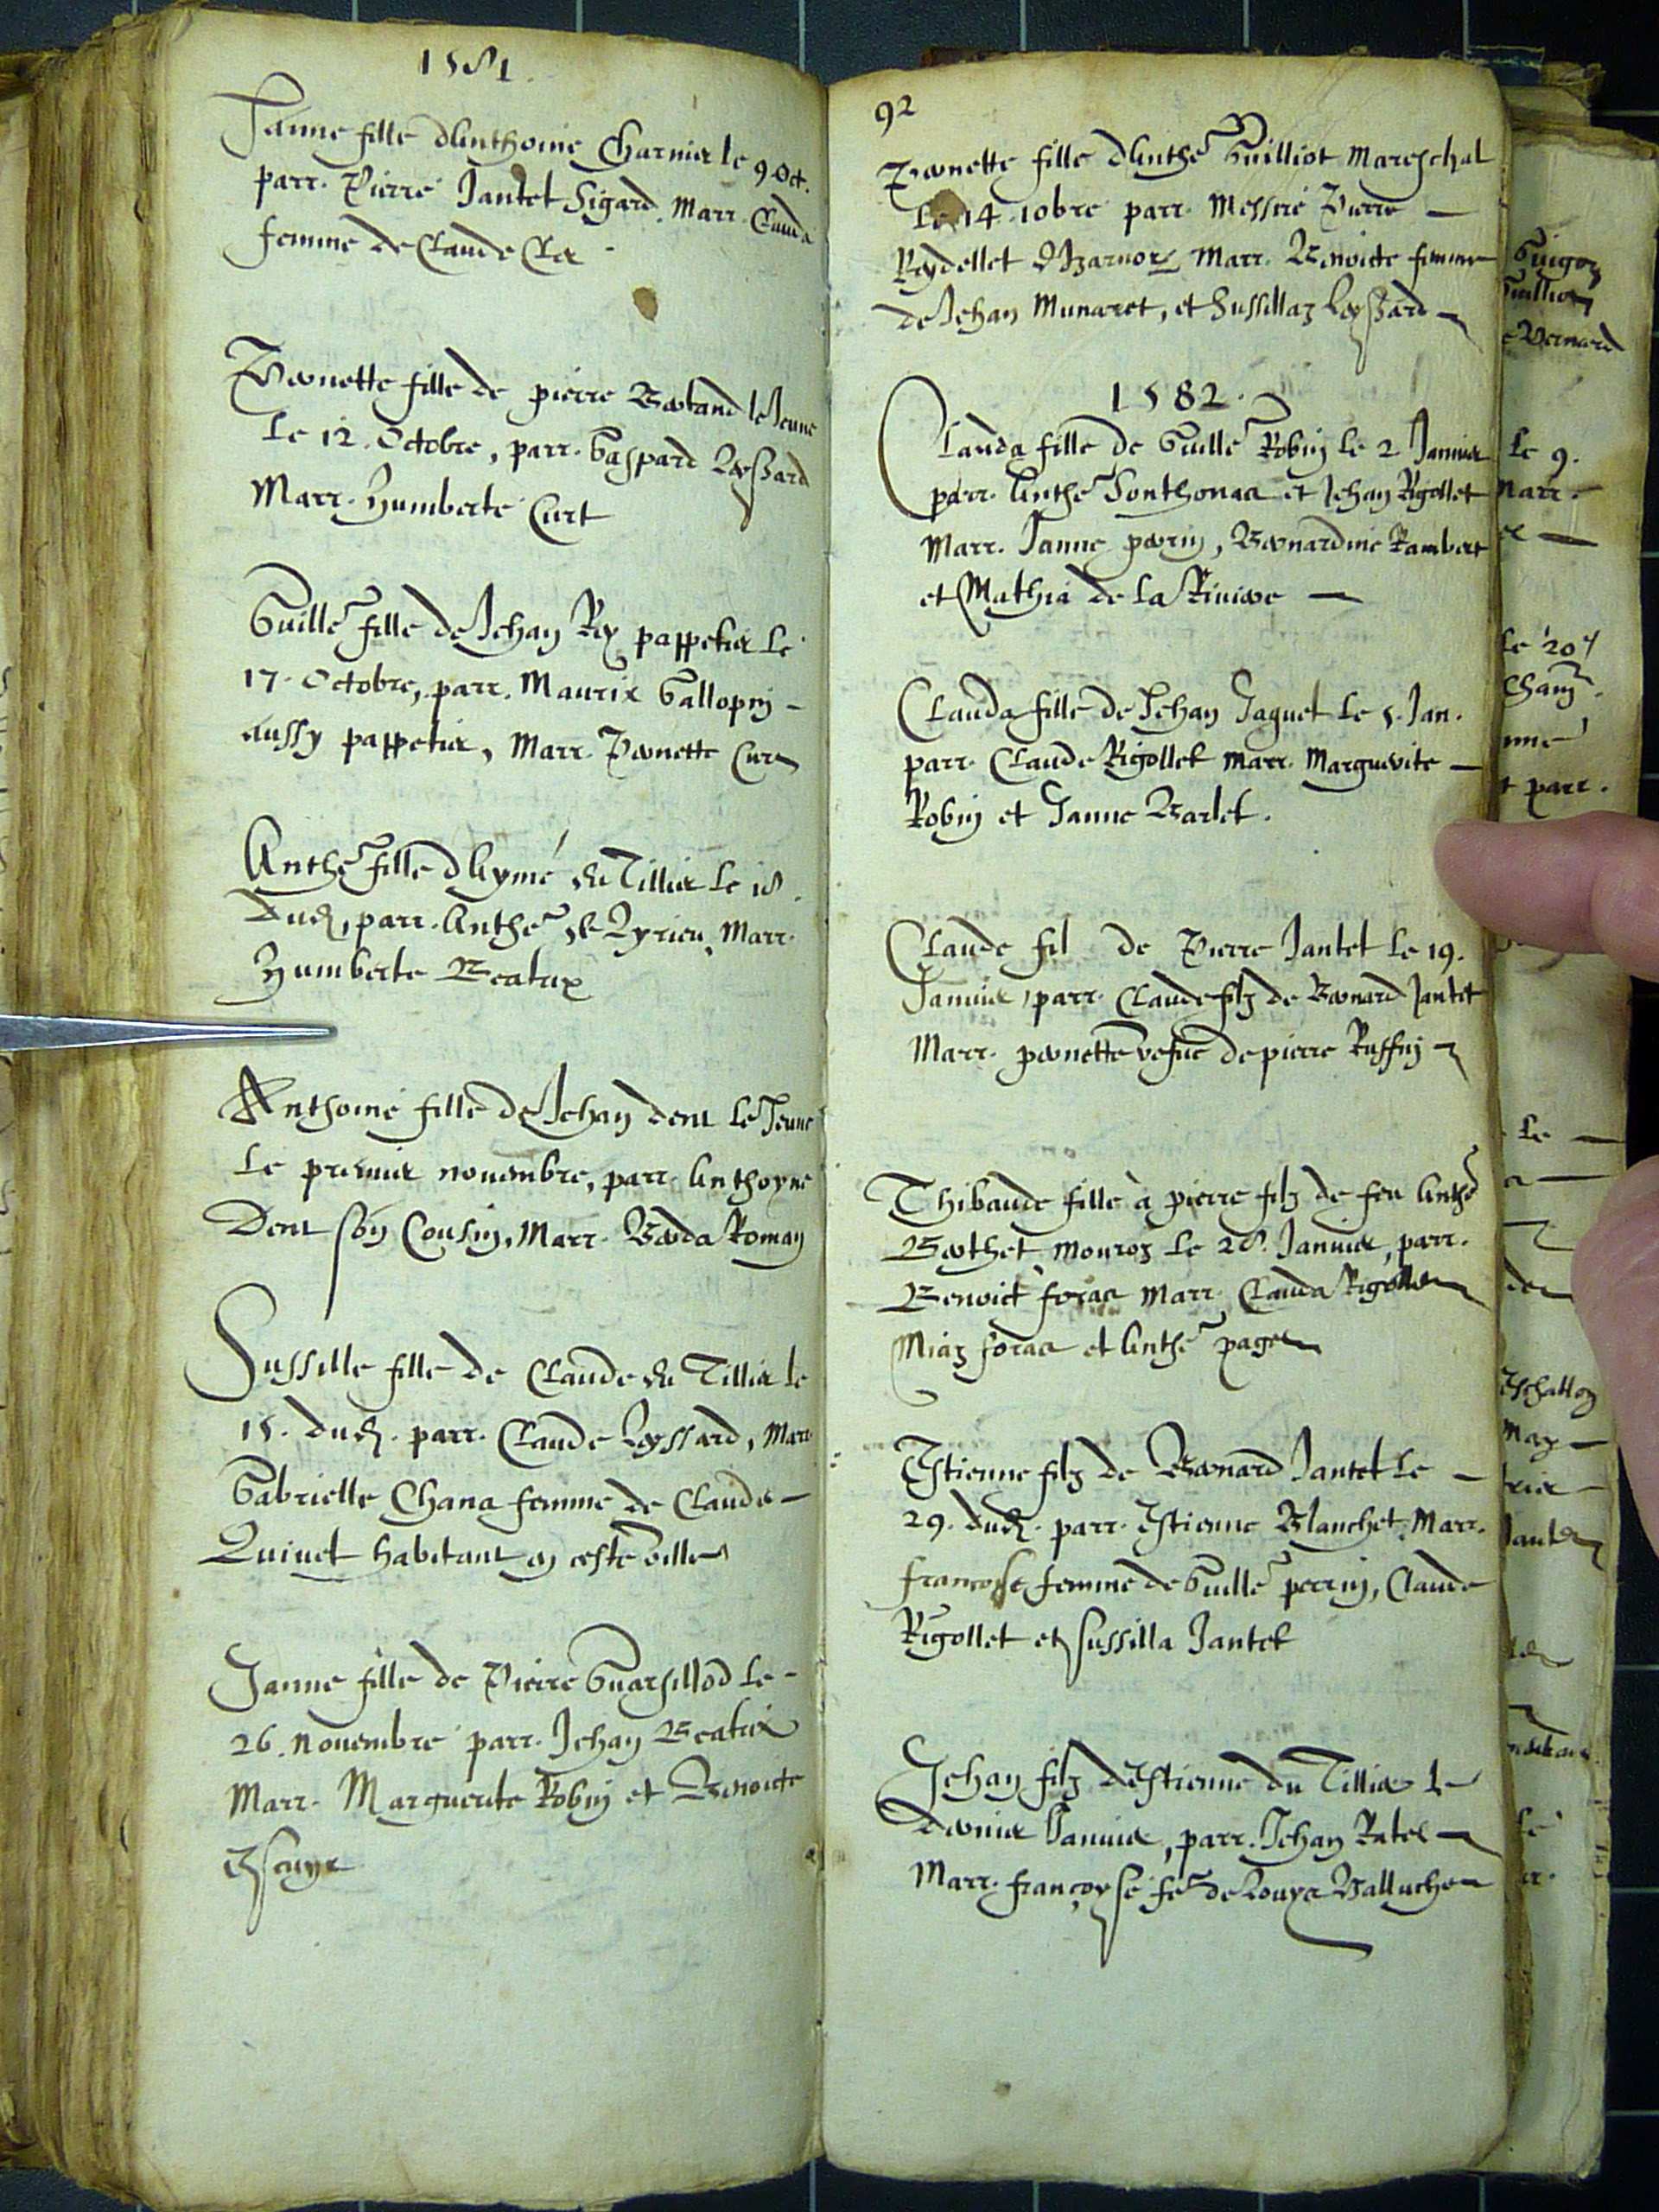 1581.
Janne fille dAnthoine Charnier le 9 Oct.
parr. Pierre Jantet Sigard. Marr. Clauda
femme de Claude Cler
Pernette fille de pierre Bertand le Jeune
Le 12. Octobre, parr. Gaspard Leyssard
Marr. Humberte Curt
Guille fille de Jehan Rey pappetier Le
17. Octobre, parr. Maurix Gallopin -
aussy pappetier, Marr. Pernette Curt
Anthe fille dAymé du Tillier Le 18.
Dud, parr. Anthe de Lyrieu, Marr.
Humberte Beatrix
Anthoine fille de Jehan dent le Jeune
Le premier nouembre, parr. Anthoyne
Dent son Cousin, Marr. Berda Roman
Sussille fille de Claude du Tillier le
15. dud. parr. Claude Leyssard, Marr
Gabrielle Chana femme de Claude -
Quinet habitant en ceste ville
Janne fille de Pierre Guarsillod Le -
26. Nouembre parr. Jehan Beatrix
Marr. Marguerite Robin et Benoicte
92
Pernette fille dAnthe Guilliot Mareschal
Le 14. 10bre parr. Messire Pierre -
Reydellet dIzarnor, Marr. Benoicte femme
de Jehan Munaret, et Sussillaz Leyssard
1582.
Clauda fille de Guille Robin le 2. Januier
parr. Anthe Sonthonax et Jehan Rigollet
Marr. Janne perrin, Bernardine Rambert
et Mathia de la Riuiere -
Clauda fille de Jehan Jaquet Le 5. Jan.
parr. Claude Rigollet marr. Marguerite -
Robin et Janne Barlet.
Claude fil de Pierre Jantet Le 19.
Januier, parr. Claude filz de Bernard Jantet
Marr. pernette vefue de pierre Ruffin
Thibaude fille à pierre filz de feu Anthe
Berthet Mouroz Le 28. Januier, parr.
Benoict foraa Marr. Clauda Rigollet
Miaz foraa et Anthe paget
Estienne filz de Bernard Jantet Le -
29. dud. parr. Estienne Blanchet, Marr.
francoise femme de Guille perrin, Claude
Rigollet et Sussilla Jantet
Jehan filz dEstienne du Tillier le
dernier Januier, parr. Jehan Ratel
Marr. françoyse fe de Louys Balluchet
Guigon
Guillion
Bernard
Le 9.
Marr. -
Le 20
parr.
Le -
May -